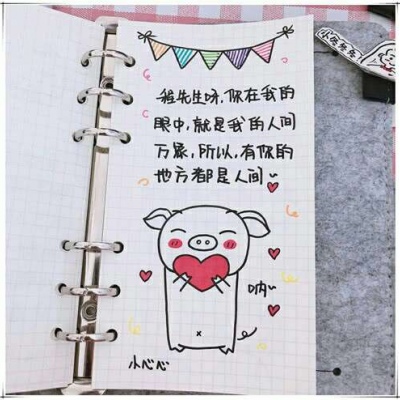 猪先生呀,你在我的
眼中,就是我的人间
万象,所以,有你的
地方都是人间~
呐~
小心心